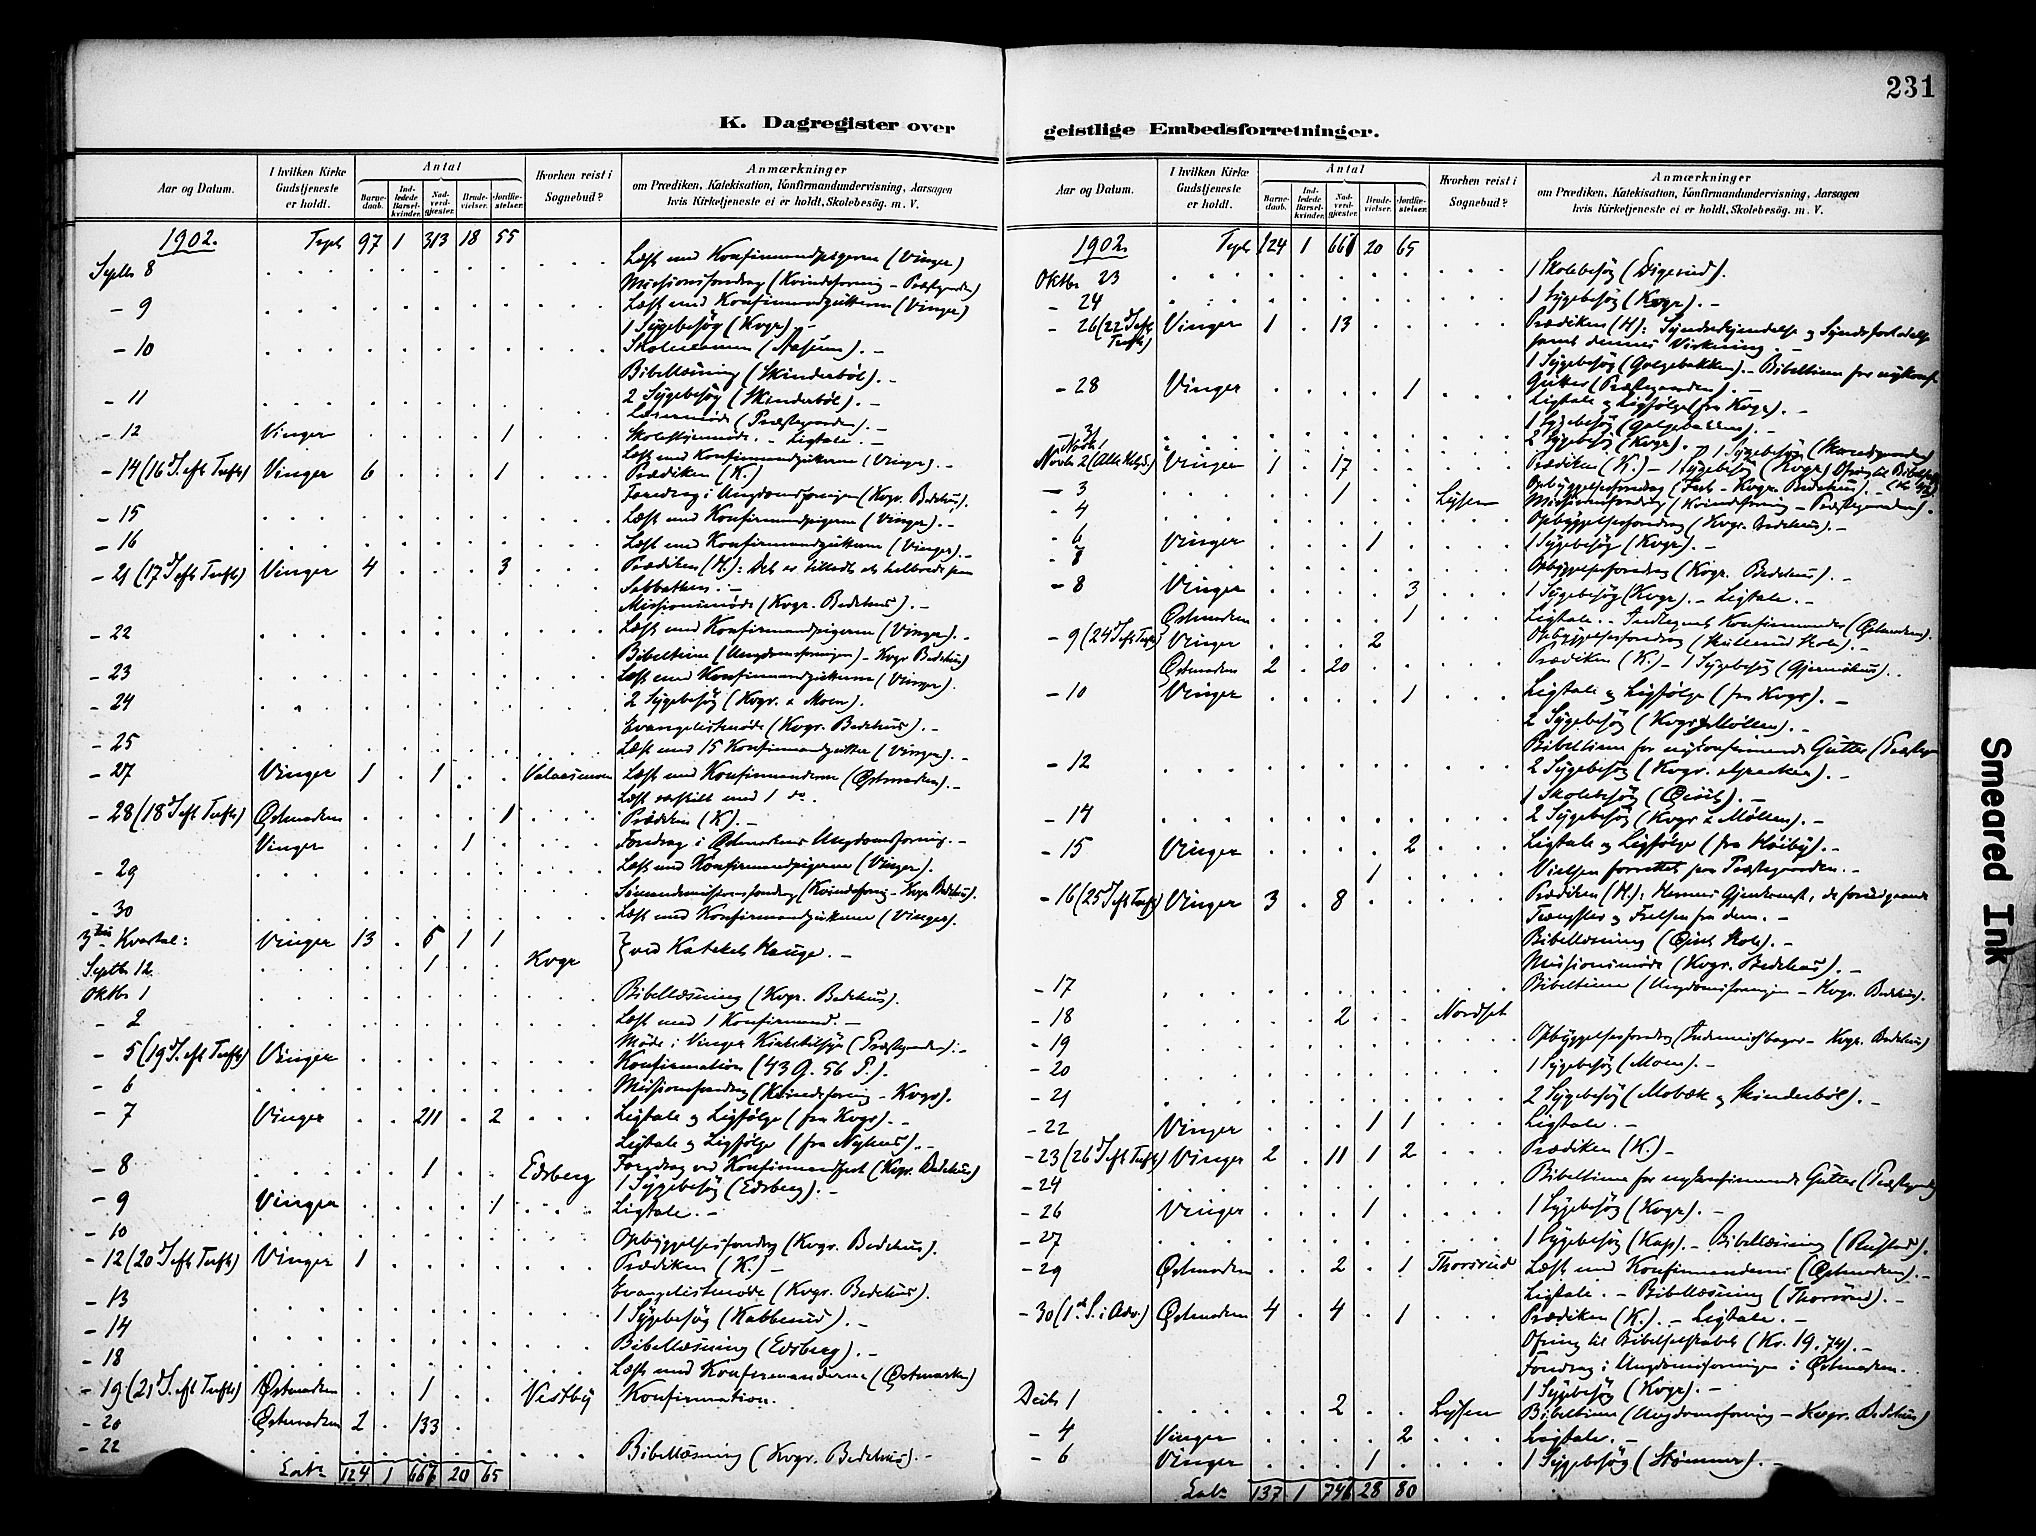 231
K. Dagregister over geistlige Embedsforretninger.
Aar og Datum. I hvilken Kirke Gudstjeneste er holdt. Antal Barnedaab. Indledede Barselkvinder. Nadverdgjester. Brudevielser. Jordfæstelser. Hvorhen reist i Sognebud? Anmærkninger om Prædiken, Katekisation, Konfirmandundervisning, Aarsagen hvis Kirketjeneste ei er holdt, Skolebesøg. m. V.
1902. Tspt 97 1 313 18 55
Septb 8 Læst med Konfirmandpigerne (Vinger)
Missionsforedrag (Kvindeforning - Præstgaarden)
- 9 Læst med Konfirmandgutterne (Vinger)
1 Sygebesøg (Kvgr). -
- 10 (Aasum). -
Bibellæsning (Skinderböl). -
- 11 2 Sygebesøg (Skinderböl). -
Læremøde (Præstegaarden). -
- 12 Vinger 1 Ligtale. -
Læst med Konfirmandgutterne (Vinger). -
- 14 (16 S. eft Trefts) Vinger 6 1 Prædiken (K.)
Foredrag i Ungdomsforningen (Kvgr. Bedehus).
- 15 Læst med Konfirmandpigerne (Vinger). -
- 16 Læst med Konfirmandgutterne (Vinger). -
- 21 (17 S eft Trefts) Vinger 4 3 Prædiken (H.): Det er tilladt at helbrede paa
Sabbathen. -
Missionsmøde (Kvgr. Bedehus). -
- 22 Læst med Konfirmandpigerne (Vinger). -
Bibeltime (Ungdomsforningen) - Kvgr Bedehus)
- 23 Læst med Konfirmandgutterne (Vinger).
- 24 2 Sygebesøg (Kvgr. & Moen).
Evangelistmøde (Kvgr. Bedehus). -
- 25 Læst med 15 Konfirmandgutter (Vinger). -
- 27 Vinger 1 1 Læst med Konfirmanderne (Østmarken). -
Læst særskilt med 1 do.
- 28 (18 S eft Trefts) Østmarken 1 Prædiken (K). -
Vinger 1 Foredrag i Østmarkens Ungdomsforning. -
- 29 Læst med Konfirmandpigerne (Vinger).
(Kvindeforning - Kvgr Bedehus).
- 30 Læst med Konfirmandgutterne (Vinger).
3die Kvartal: Vinger 13 6 1 1 } ved Katekel Hauge. -
Septb 12 1 Kvgr
Oktbr 1 Bibellæsning (Kvgr. Bedehus).
- 2 Læst med 1 Konfirmand. -
Møde i Vinger Kirketilsyn (Præstegaarden). -
- 5 (19 S. eft Trefts) Vinger Konfirmation (43 G. 56 P.).
- 6 Missionsforedrag (Kvindeforning - Kvgr).
- 7 Vinger 211 2 Ligtale og Ligfølge (fra Kvgr). -
Ligtale og Ligfølge (fra Nyhus). -
- 8 1 Edsberg Foredrag ved Konfirmandfest (Kvgr. Bedehus)
1 Sygebesøg (Edsberg). -
- 9 Vinger 1 Ligtale. -
- 10 Opbyggelsesforedrag (Kvgr. Bedehus).
- 12 (20 S eft Trefts) Vinger 1 Prædiken (K.) -
Evangelistmøde (Kvgr. Bedehus).
- 13 1 Sygebesøg (Kabberud). -
- 14 Bibellæsning (Edsberg). -
- 18 Læst med Konfirmanderne (Østmarken)
- 19 (21 S. eft Trefts) Østmarken 1 Vestby Konfirmation.
- 20 Østmarken 2 133
- 22 Bibellæsning (Kvgr. Bedehus). -
Lats 124 1 666 20 65
Aar og Datum. I hvilken Kirke Gudstjeneste er holdt. Antal Barnedaab. Indledede Barselkvinder. Nadverdgjester. Brudevielser. Jordfæstelser. Hvorhen reist i Sognebud? Anmærkninger om Prædiken, Katekisation, Konfirmandundervisning, Aarsagen hvis Kirketjeneste ei er holdt, Skolebesøg. m. V.
1902. Tspt 124 1 666 20 65
Oktbr 23 1 Skolebesøg (Digerud).
- 24 1 Sygebesøg (Kvgr). -
- 26 (22 S eft Trefts) Vinger 1 13 Prædiken (H): Syndserkjendelse og Syndsforladelse
samt dennes Virkning. -
1 Sygebesøg (Galgebakken). - Bibeltime for nykonf.
- 28 Vinger 1 Gutter (Præstegaarden). -
Ligtale og Ligfølge (fra Kvgr). -
- 31 1 Sygebesøg (Galgebakken). -
Novb 1 2 Sygebesøg (Kvgr). -
Novb 2 (Alle Helgd.) Vinger 1 17 Prædiken (K.) - 1 Sygebesøg (Kvgr)
- 3 1 Lyssen Opbyggelsesforedrag
- 4 Missionsforedrag (Kvindeforning - Præstegaarden). -
Opbyggelsesforedrag (Kvgr. Bedehus). -
- 6 Vinger 1 1 Sygebesøg (Kvgr). -
- 7 Opbyggelsesforedrag (Kvgr. Bedehus). -
- 8 Vinger 3 1 Sygebesøg (Kvgr). - Ligtale. -
Østmarken 1 Ligtale. - Indtegnet Konfirmander (Østmarken).
- 9 (24 S eft Trefts) Vinger 2 Opbyggelsesforedrag (Skole). -
Østmarken 2 20 Prædiken (K.) - 1 Sygebesøg (Gjermshus).
- 10 Vinger 1 Ligtale og Ligfølge (fra Kvgr). -
2 Sygebesøg (Kvgr & Møllen). -
Bibeltime for nykonfirmerede Gutter (Præstegr
- 12 2 Sygebesøg (Kvgr. . -
1 Skolebesøg . -
- 14 2 Sygebesøg (Kvgr & Møllen). -
- 15 Vinger 2 Ligtale og Ligfølge (fra Höiby). -
1 Vielsen forrettet paa Præstegaarden. -
- 16 (25 S eft Trefts) Vinger 3 8 Prædiken (H.): Herrens Gjenkomst, de foregaaende
Trængsler og Frelsen fra dem. -
Bibellæsning (Skole). -
Missionsmøde (Kvgr. Bedehus). -
- 17 Bibeltime (Ungdomsforningen - Kvgr. Bedehus).
- 18 2 Nordset
- 19 Opbyggelsesforedrag (Indremissbøger - Kvgr. Bedehus)
- 20 1 Sygebesøg (Moen). -
- 21 2 Sygebesøg (Mobæk og Skinderböl). -
- 22 Vinger 1 1 Ligtale. -
- 23 (26 S eft Trefts) Vinger 2 11 1 2 Prædiken (K.) -
- 24 Bibeltime for nykonfirmerede Gutter (Præstegrd)
- 26 Vinger 1 1 Sygebesøg (Kvgr). -
- 27 1 Sygebesøg (Kap). - Bibellæsning (Rustad).
- 29 Østmarken 2 1 Thorsrud Læst med Konfirmanderne (Østmarken). -
Ligtale. - Bibellæsning (Thorsrud). -
- 30 (1st S. i Adv.) Østmarken 4 4 1 Prædiken (K.). - Ligtale. -
Ofring til Bibelselskabet (Kr. 19.74). -
Foredrag i Ungdomsforningen i Østmarken.
1 Sygebesøg (Kvgr). -
Decb 1 2 Lyssen Bibeltime (Ungdomsforning - Kvgr. Bedehus)
- 4 Vinger 2 Ligtale. -
- 6 Vinger 1 1 Sygebesøg (Stømner). -
Lats 137 1 746 28 80
Smeared Ink